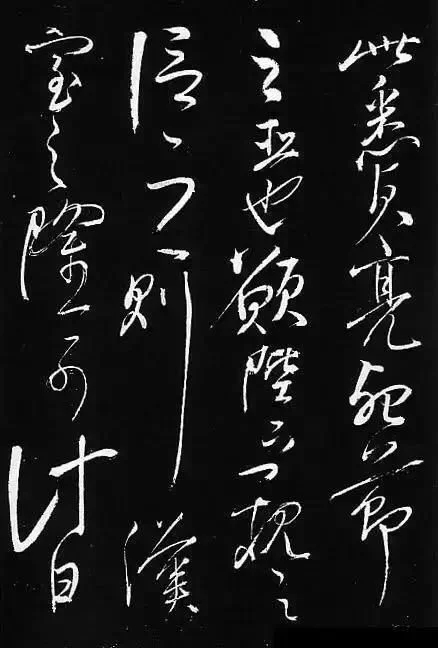 此悉貞亮死節
之臣也願陛下親之
信之則漢
室之隆可計日